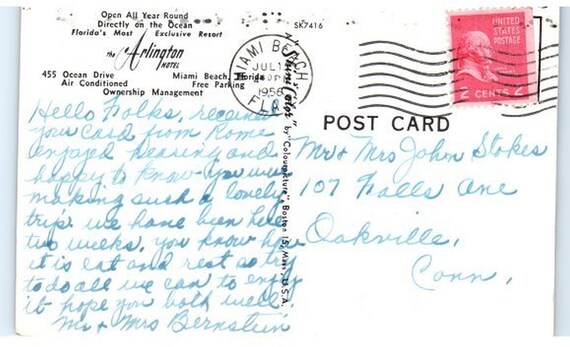 Open All Year Round
Directly on the Ocean
Florida's Most Exclusive Resort
the Arlington
HOTEL
455 Ocean Drive Miami Beach, Florida
Air Conditioned Free Parking
Ownership Management
Hello Folks, received
your card from Rome
enjoyed hearing and
happy to know you were
making such a lovely
trip. we have been here
two weeks. you know how
it is eat and rest so try
to do all we can to enjoy
it hope you both well.
Mr & Mrs Bernstein
SK7416
MIAMI BEACH
JUL 1
PM
1956
FLA
UNITED
STATES
POSTAGE
2 CENTS 2
POST CARD
Mr & Mrs John Stokes
107 Falls Ave
Oakville,
Conn,
by "Colourpicture", Boston 15, Mass., U.S.A.